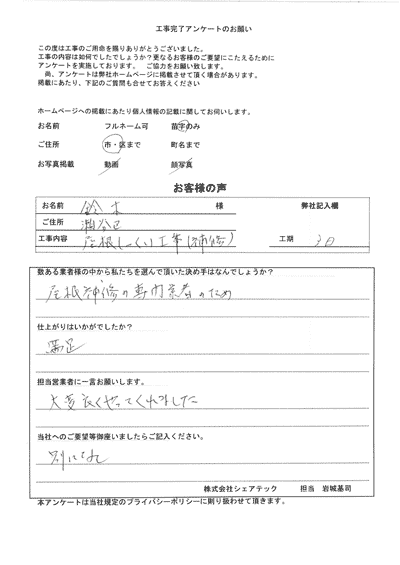 工事完了アンケートのお願い
この度は工事のご用命を賜りありがとうございました。
工事の内容は如何でしたでしょうか？更なるお客様のご要望にこたえるために
アンケートを実施しております。　ご協力をお願い致します。
尚、アンケートは弊社ホームページに掲載させて頂く場合があります。
掲載にあたり、下記のご質問も合せてお答えください
ホームページへの掲載にあたり個人情報の記載に関してお伺いします。
お名前　フルネーム可　苗字のみ
ご住所　市・区まで　町名まで
お写真掲載　動画　顔写真
お客様の声
お名前　鈴木　様　弊社記入欄
ご住所　瀬谷区
工事内容　屋根しっくい工事(補修)　工期　3日
数ある業者様の中から私たちを選んで頂いた決め手はなんでしょうか？
屋根補修の専門業者のため
仕上がりはいかがでしたか？
満足
担当営業者に一言お願いします。
大変良くやってくれました
当社へのご要望等御座いましたらご記入ください。
別になし
株式会社シェアテック　担当　岩城基司
本アンケートは当社規定のプライバシーポリシーに則り扱わせて頂きます。